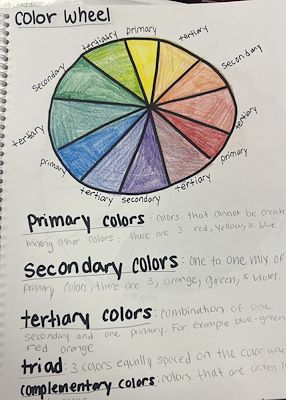 color wheel
tertiary primary tertiary
secondary secondary
tertiary tertiary
primary primary
tertiary secondary tertiary
Primary colors: colors that cannot be create
mixing other colors; there are 3 red, yellow, & blue
Secondary colors: one to one mix of
primary colors; there are 3, orange, green, & violet.
tertiary colors: combination of one
secondary and one primary. For example blue-green
red orange
triad: 3 colors equally spaced on the color whe
complementary colors: colors that are across